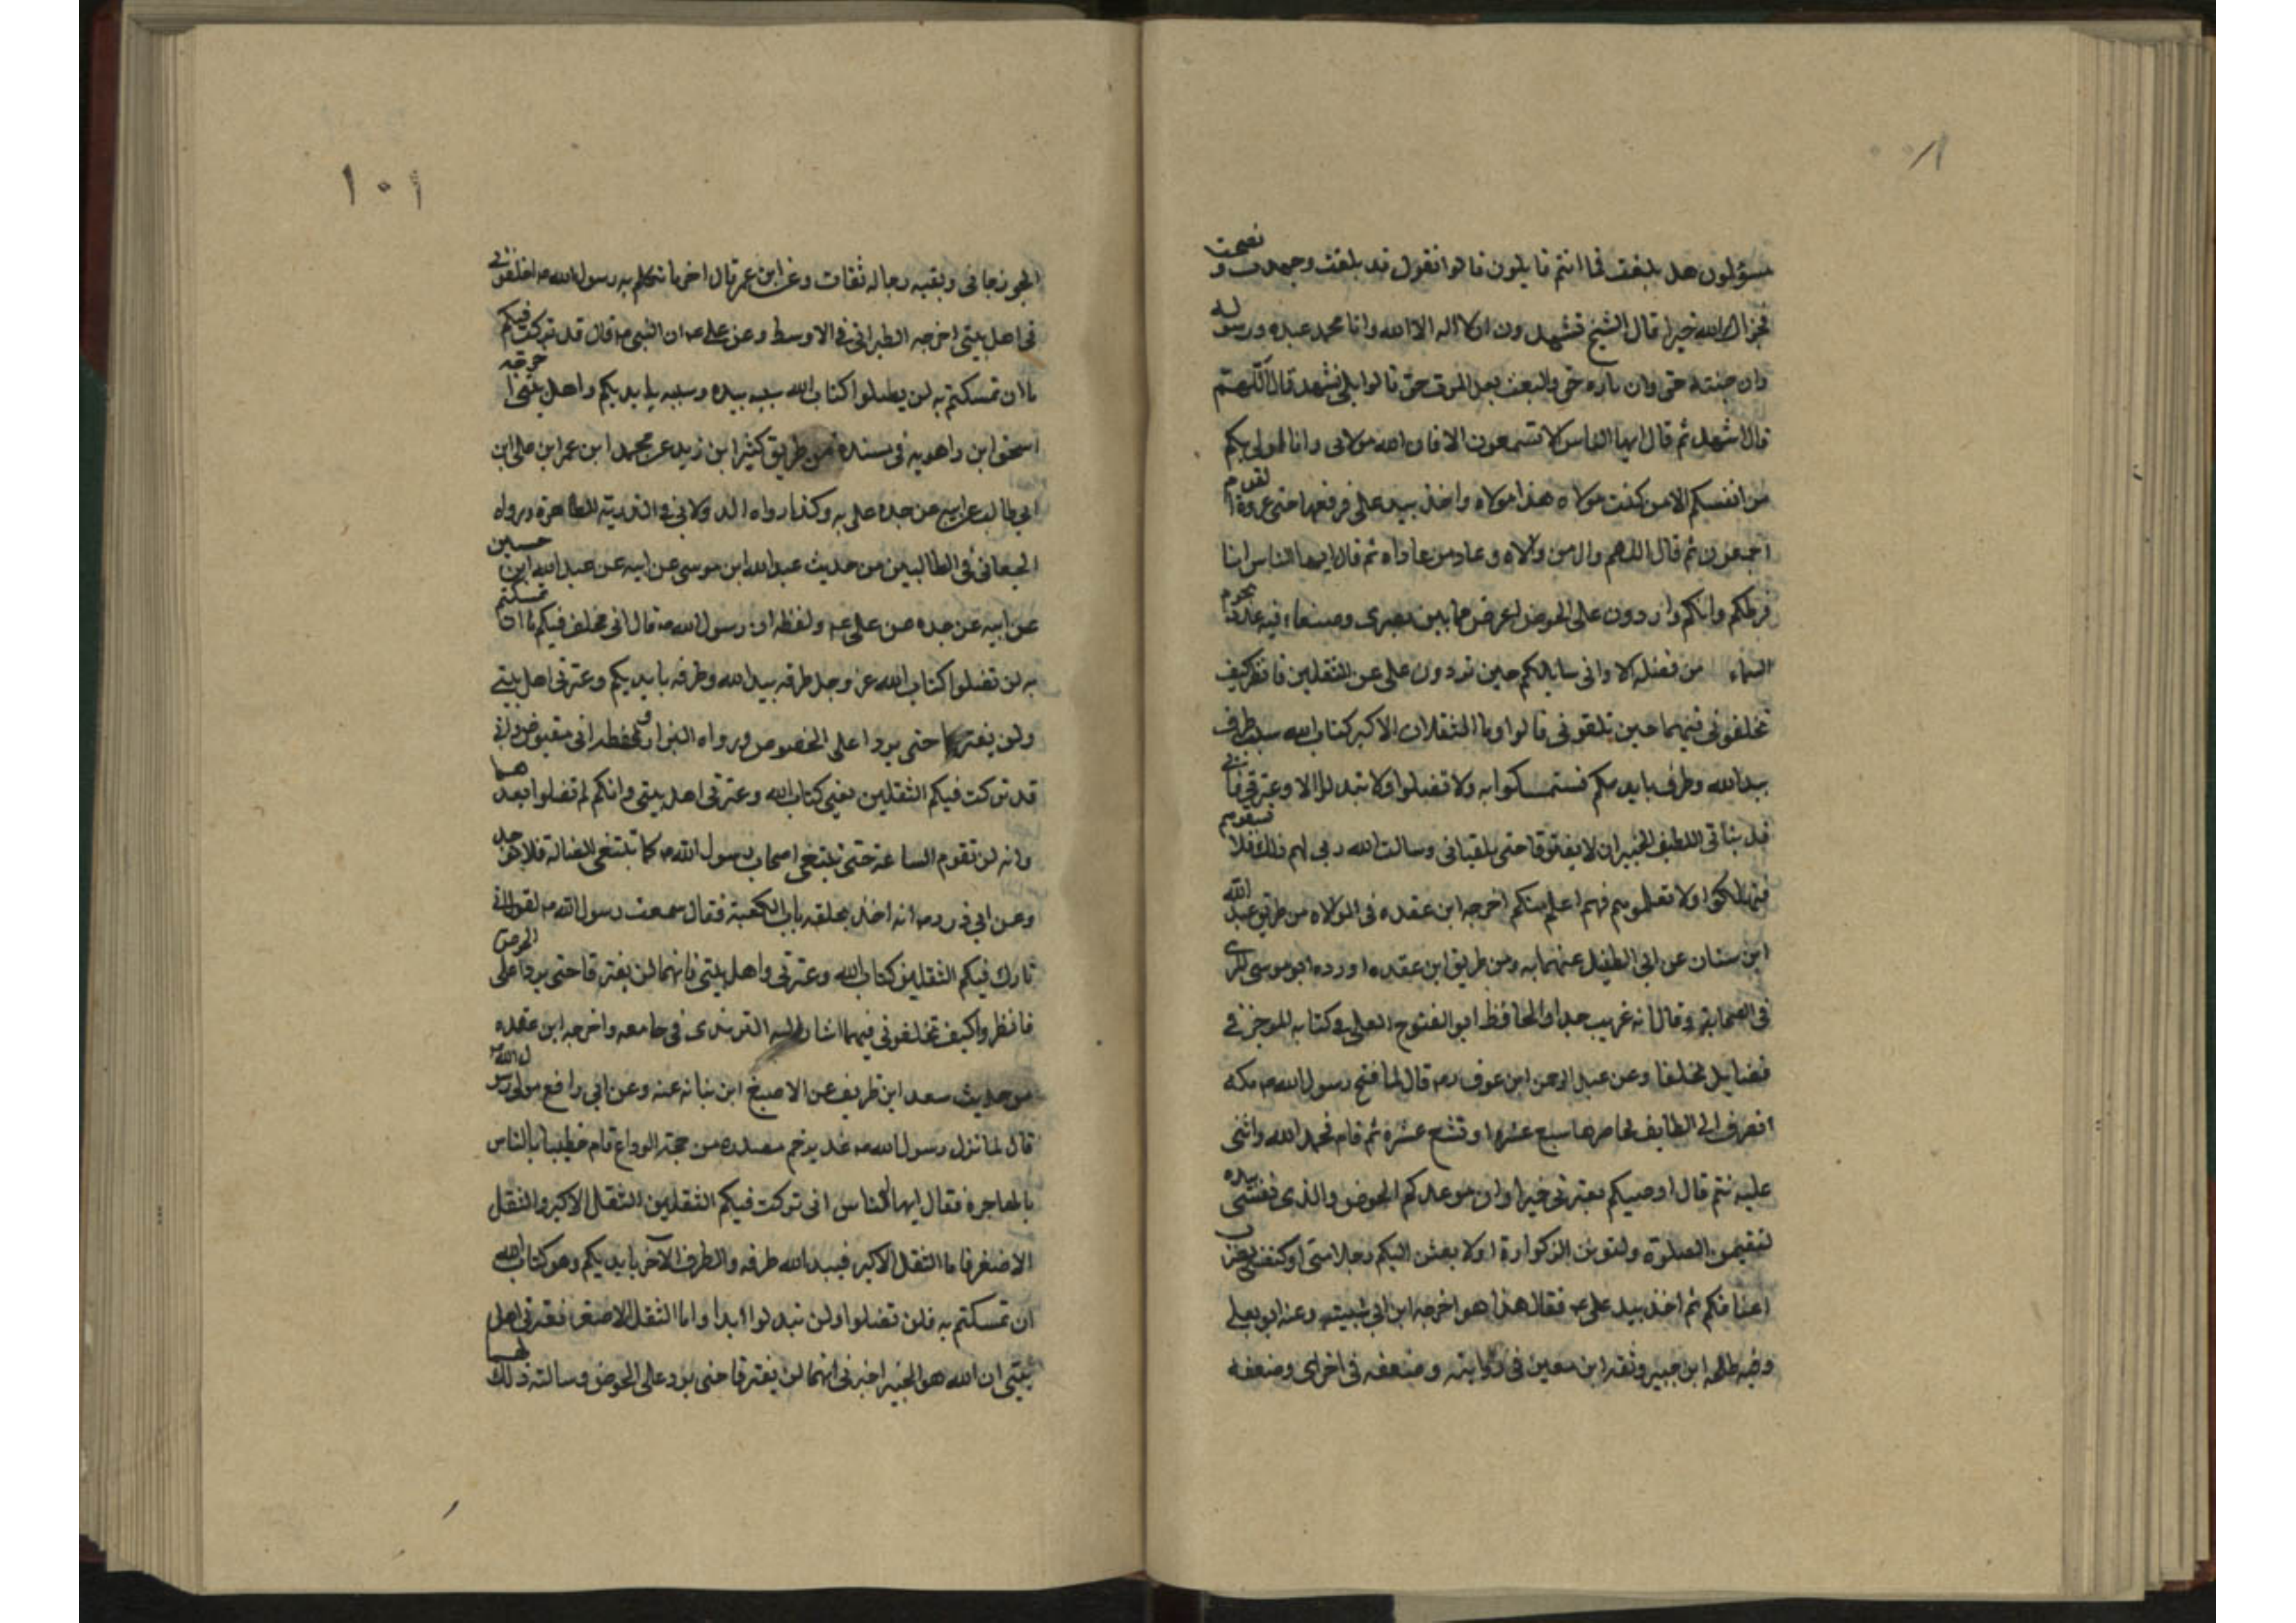 مسؤلون هل بلغت فما انتم قايلون قالوا نقول قد بلغت وجهدت و نصحت
فجزاك الله خيرا قال الشيخ تشهدون ان لا اله الا الله وانا محمد عبده ورسوله
وان جنته حق وان ناره حق والبعث بعد الموت حق قالوا بلى نشهد قال اللهم
قال اشهد ثم قال ايها الناس الا تسمعون الا فان الله مولاى وانا اولى بكم
من انفسكم الا من كنت مولاه هذا مولاه واخذ بيد على فرفعها حتى عروة القوم
اجمعون ثم قال اللهم وال من والاه وعاد من عاداه ثم قال ايها الناس انا
فرطكم وانكم واردون على الحوض اعرض مما بين بصرى وصنعاء فيه عدد نجوم
السماء من فضله الا وانى سايلكم حين تردون على عن الثقلين فانظر كيف
تخلفونى فيهما حين تلقونى قالوا وما الثقلان الاكبر كتاب الله سبب طرف
بيد الله وطرف بايديكم فستمسكوا به ولا تضلوا ولا تبدلوا الا وعترتى فانى
قد بنأنى اللطيف الخبير ان لا يفترقا حتى يلقيانى وسالت الله ربى لهم ذلك فلا تسبقوهم
فتهلكوا ولا تعلموهم فهم اعلم منكم اخرجه ابن عقده فى الموالاه من طريق عبد الله
ابن سنان عن ابى الطفيل عنهما به ومن طريق ابن عقده اورده ابو موسى المدى
فى الصحابة وقال انه غريب جدا والحافظ ابو الفتوح العجلى فى كتابه الموجز فى
فضايل تخلفا وعن عبد الرحمن ابن عوف رم قال لما فتح رسول الله ص مكه
انصرف الى الطايف فحاصرها سبع عشرة او تسع عشرة ثم قام فحمد الله واثنى
عليه ثم قال اوصيكم بعترتى خيرا وان موعدكم الحوض والذى نفسى بيده
لتقيمون الصلوة ولتوتن الزكوة او لا بعثن اليكم رجلا منى او كنفسى يضرب
اعناقكم ثم اخذ بيد على ع فقال هذا هو اخرجه ابن ابى شيبه وعنه ابو يعلى
وفيه طلحه ابن جبير وثقه ابن معين فى رواية وضعفه فى اخراى وضعفه
١٠١
الجوزجانى وبقيه رجاله ثقات وعن ابن عمر قال اخر ما تكلم به رسول الله ص اخلفونى
فى اهل بيتى اخرجه الطبرانى فى الاوسط وعن على ع ان النبى ص قال قد تركت فيكم
ما ان تمسكتم به لن يضلوا كتاب الله سببه بيده وسببه بايديكم واهل بيتى اخرجه
اسحق ابن راهويه فى مسنده من طريق كثير ابن زيد عن محمد ابن عمر ابن على ابن
ابى طالب عن ابيه عن جده على به وكذا رواه الدولابى فى الذرية الطاهرة ورواه
الجعابى فى الطالبين من حديث عبد الله ابن موسى عن ابيه عن عبد الله ابن حسين
عن ابيه عن جده عن على ع ولفظه ان رسول الله ص قال انى مخلف فيكم ما ان تمسكتم
به لن تضلوا كتاب الله عز وجل طرفه بيد الله وطرفه بايديكم وعترتى اهل بيتى
ولن يفترقا حتى يردا على الخصوص ورواه البزار ولفظه انى مقبوض وانى
قد تركت فيكم الثقلين يعنى كتاب الله وعترتى اهل بيتى وانكم لم تضلوا بعدهما
وانه لن تقوم الساعة حتى تبتغى اصحاب رسول الله ص كما تبتغى الضالة فلا توجد
وعن ابى ذر رم انه اخذ بحلقه باب الكعبة فقال سمعت رسول الله ص لقول انى
تارك فيكم الثقلين كتاب الله وعترتى واهل بيتى فانهما لن يفترقا حتى يردا على الحوض
فانظروا كيف تخلفونى فيهما اشار اليه الترمذى فى جامعه واخرجه ابن عقده
من حديث سعد ابن طريف عن الاصبغ ابن نباته عنه وعن ابى رافع مولى رسول الله ص
قال لما نزل رسول الله ص غدير خم مصدره من حجة الوداع قام خطيبا بالناس
بالهاجره فقال ايها الناس انى تركت فيكم الثقلين الثقل الاكبر والثقل
الاصغر فاما الثقل الاكبر فبيد الله طرفه والطرف الآخر بايديكم وهو كتاب الله
ان تمسكتم به فلن تضلوا ولن تبدلوا ابدا واما الثقل الاصغر فعترتى اهل
بيتى ان الله هو الخبير اخبرنى انهما لن يفترقا حتى يرد على الحوض وسالته ذلك لهما